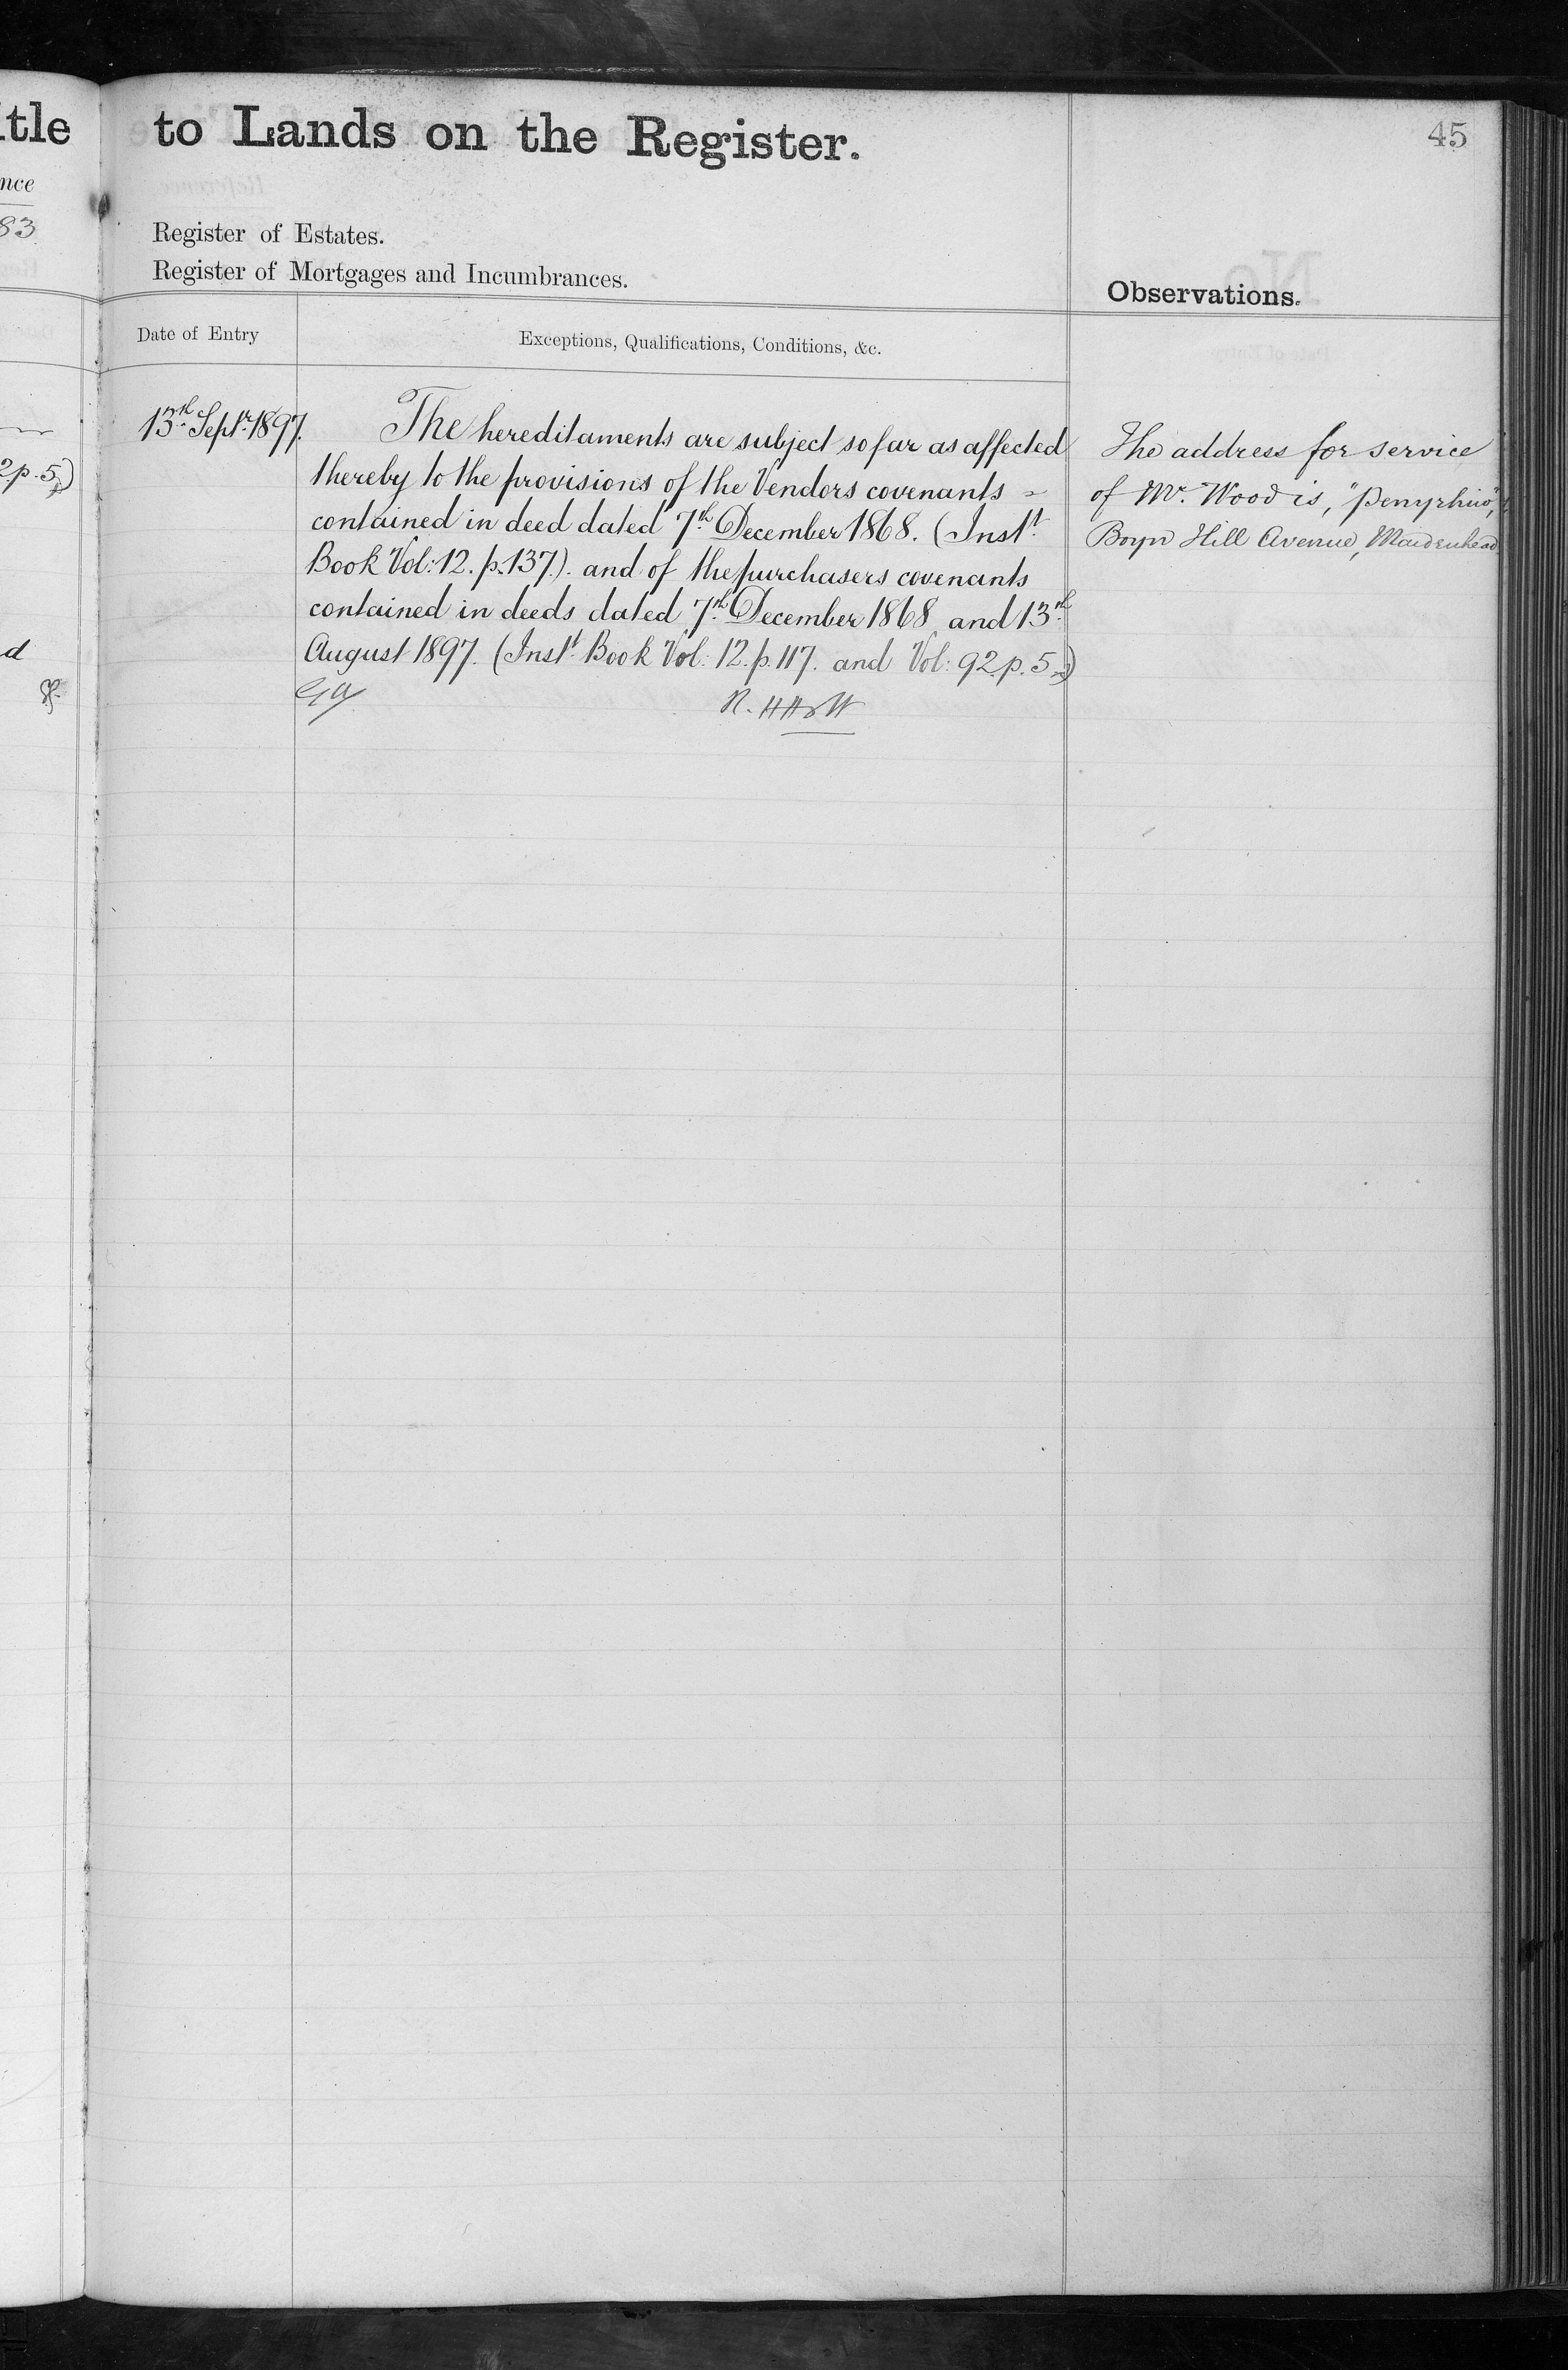 itle
nce
83
2 p. 5)
d
to Lands on the Register.
45
Register of Estates.
Register of Mortgages and Incumbrances.
Observations.
Date of Entry
Exceptions, Qualifications, Conditions, &c.
13th Septr. 1897.
The hereditaments are subject so far as affected
thereby to the provisions of the Vendors covenants =
contained in deed dated 7th December 1868. (Instt.
Book Vol: 12. p. 137.). and of the purchasers covenants
contained in deeds dated 7th December 1868 and 13th
August 1897. (Instt. Book Vol: 12. p. 117. and Vol: 92 p. 5)
The address for service
of Mr. Wood is,
Boyn Hill Avenue, Maidenhead